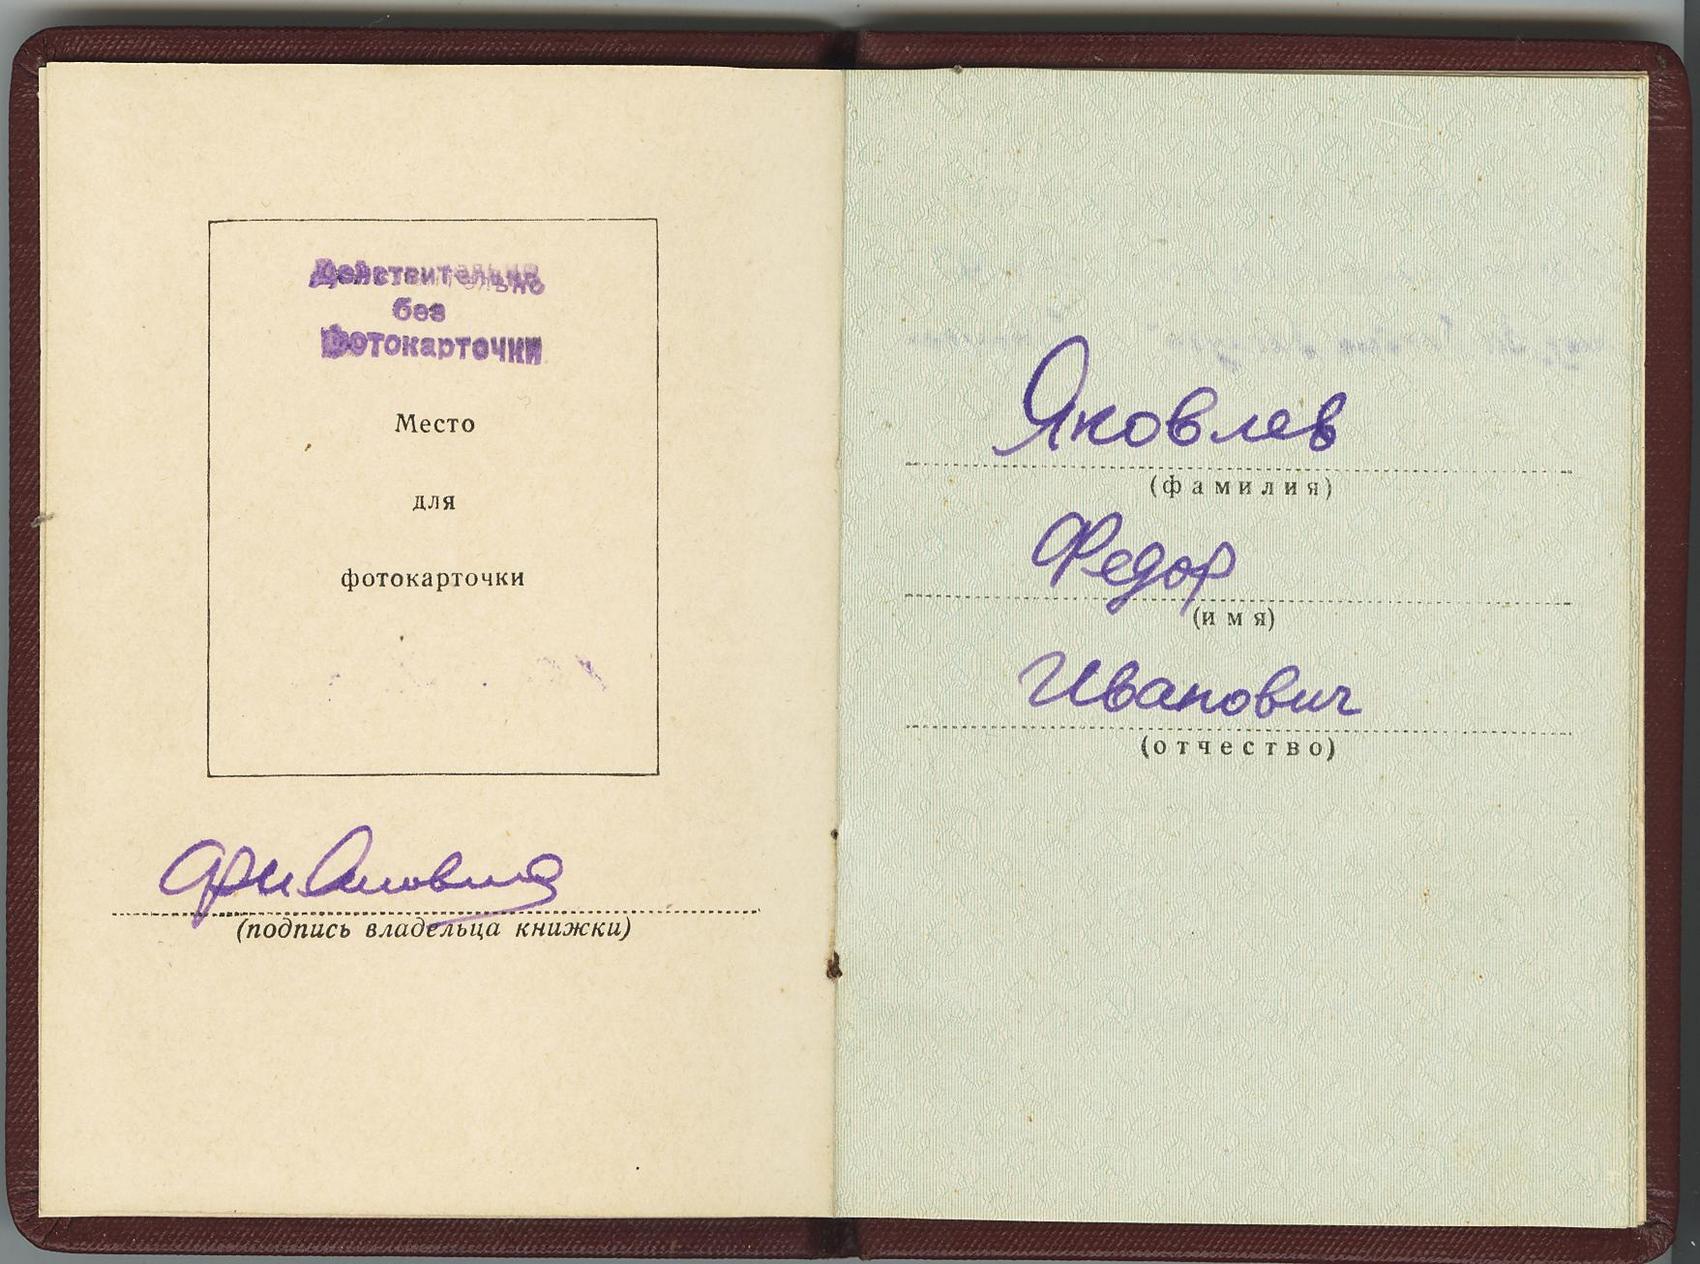 Действительно
без
фотокарточки
Место
для
фотокарточки
(подпись владельца книжки)
Яковлев
(фамилия)
Федор
(имя)
Иванович
(отчество)